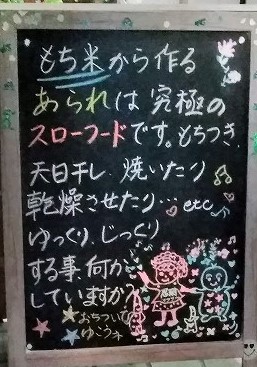 もち米から作る
あられは究極の
スローフードです。もちつき、
天日干し、焼いたり
乾燥させたり…etc
ゆっくり、じっくり
する事、何か
していますか？
おちついて
ゆこうネ